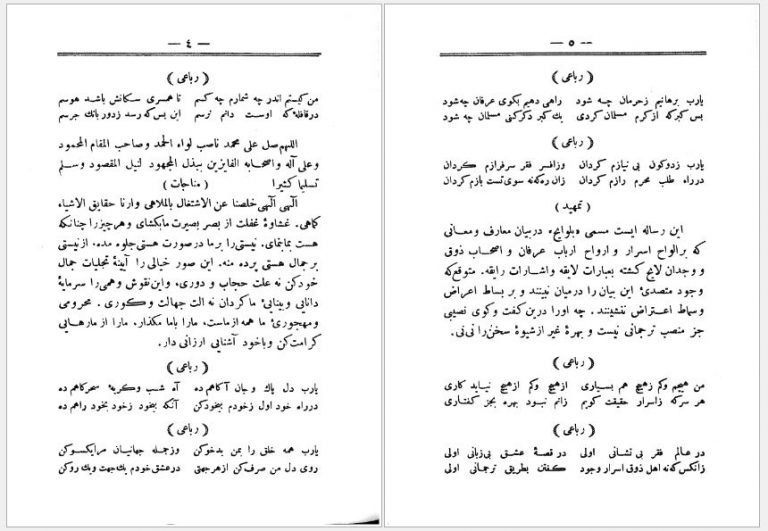 — ٤ —
( رباعی )
من کیستم اندر چه شمارم چه کسم تا همسری سکانش باشد هوسم
در قافله که اوست دانم نرسم این بس که رسد زدور بانك جرسم
اللهم صل علی محمد ناصب لواء الحمد وصاحب المقام المحمود
وعلی آله واصحابه الفایزین ببذل المجهود لنیل المقصود وسلم
تسلیما کثیرا ( مناجات )
آلهی آلهی خلصنا عن الاشتغال بالملاهی وارنا حقایق الاشیاء
کماهی. غشاوۀ غفلت از بصر بصیرت مابکشای وهرچیز را چنانکه
هست بمابنمای. نیستی را بر ما در صورت هستی جلوه مده، از نیستی
بر جمال هستی پرده منه. این صور خیالی را آیینۀ تجلیات جمال
خود کن نه علت حجاب و دوری، واین نقوش وهمی را سرمایۀ
دانایی وبینایی ما کردان نه الت جهالت و کوری. محرومی
ومهجوری ما همه از ماست، مارا باما مکذار، مارا از مارهایی
کرامت کن وباخود آشنایی ارزانی دار.
( رباعی )
یارب دل پاك و جان آکاهم ده آه شب و کریۀ سحرکاهم ده
در راه خود اول زخودم بیخود کن آنکه بیخود زخود بخود راهم ده
( رباعی )
یارب همه خلق را بمن بدخو کن وزجمله جهانیان مرا یکسو کن
روی دل من صرف کن از هر جهتی در عشق خودم یك جهت ویك رو کن
— ٥ —
( رباعی )
یارب برهانیم زحرمان چه شود راهی دهیم بکوی عرفان چه شود
بس کبر که از کرم مسلمان کردی یك کبر دکر کنی مسلمان چه شود
( رباعی )
یارب زدو کون بی نیازم کردان وزافسر فقر سرفرازم کردان
در راه طلب محرم رازم کردان زان ره که نه سوی تست بازم کردان
( تمهید )
این رساله ایست مسمی «بلوایح» در بیان معارف ومعانی
که بر الواح اسرار و ارواح ارباب عرفان و اصحاب ذوق
و وجدان لایح کشته بعبارات لایقه واشارات رایقه. متوقع که
وجود متصدئ این بیان را در میان نبینند و بر بساط اعراض
وسماط اعتراض ننشینند. چه او را درین کفت وکوی نصیبی
جز منصب ترجمانی نیست و بهرۀ غیر از شیوۀ سخن رانی نی.
( رباعی )
من هیچم وکم زهیچ هم بسیاری از هیچ وکم از هیچ نیاید کاری
هر سر که زاسرار حقیقت کویم زانم نبود بهره بجز کفتاری
( رباعی )
در عالم فقر بی نشانی اولی در قصۀ عشق بی زبانی اولی
زانکس که نه اهل ذوق اسرار وجود کفتن بطریق ترجمانی اولی